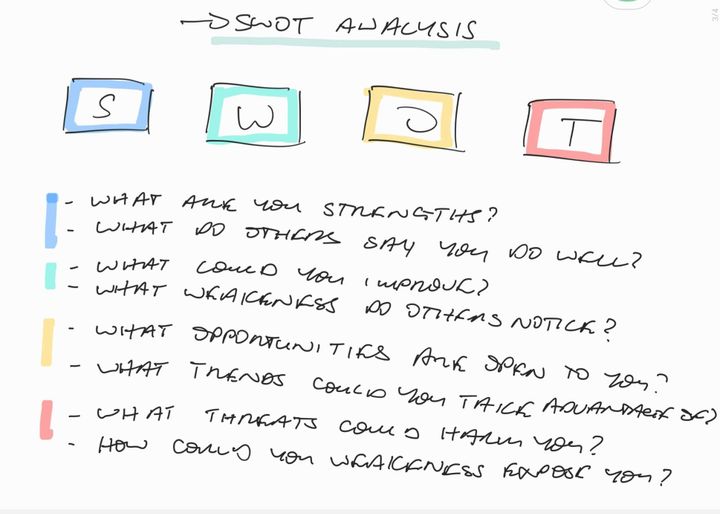 → SWOT ANALYSIS
S W O T
- WHAT ARE YOU STRENGTHS?
- WHAT DO OTHERS SAY YOU DO WELL?
- WHAT COULD YOU IMPROVE?
- WHAT WEAKENESS DO OTHERS NOTICE?
- WHAT OPPORTUNITIES ARE OPEN TO YOU?
- WHAT TRENDS COULD YOU TAKE ADVANTAGE OF?
- WHAT THREATS COULD HARM YOU?
- HOW COULD YOU WEAKENESS EXPOSE YOU?
3/4